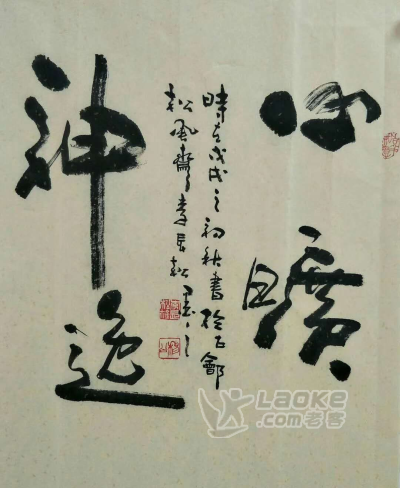 心曠
神逸
時在戊戌之初秋書於
松風齋李長松
LAOKE
.com老客